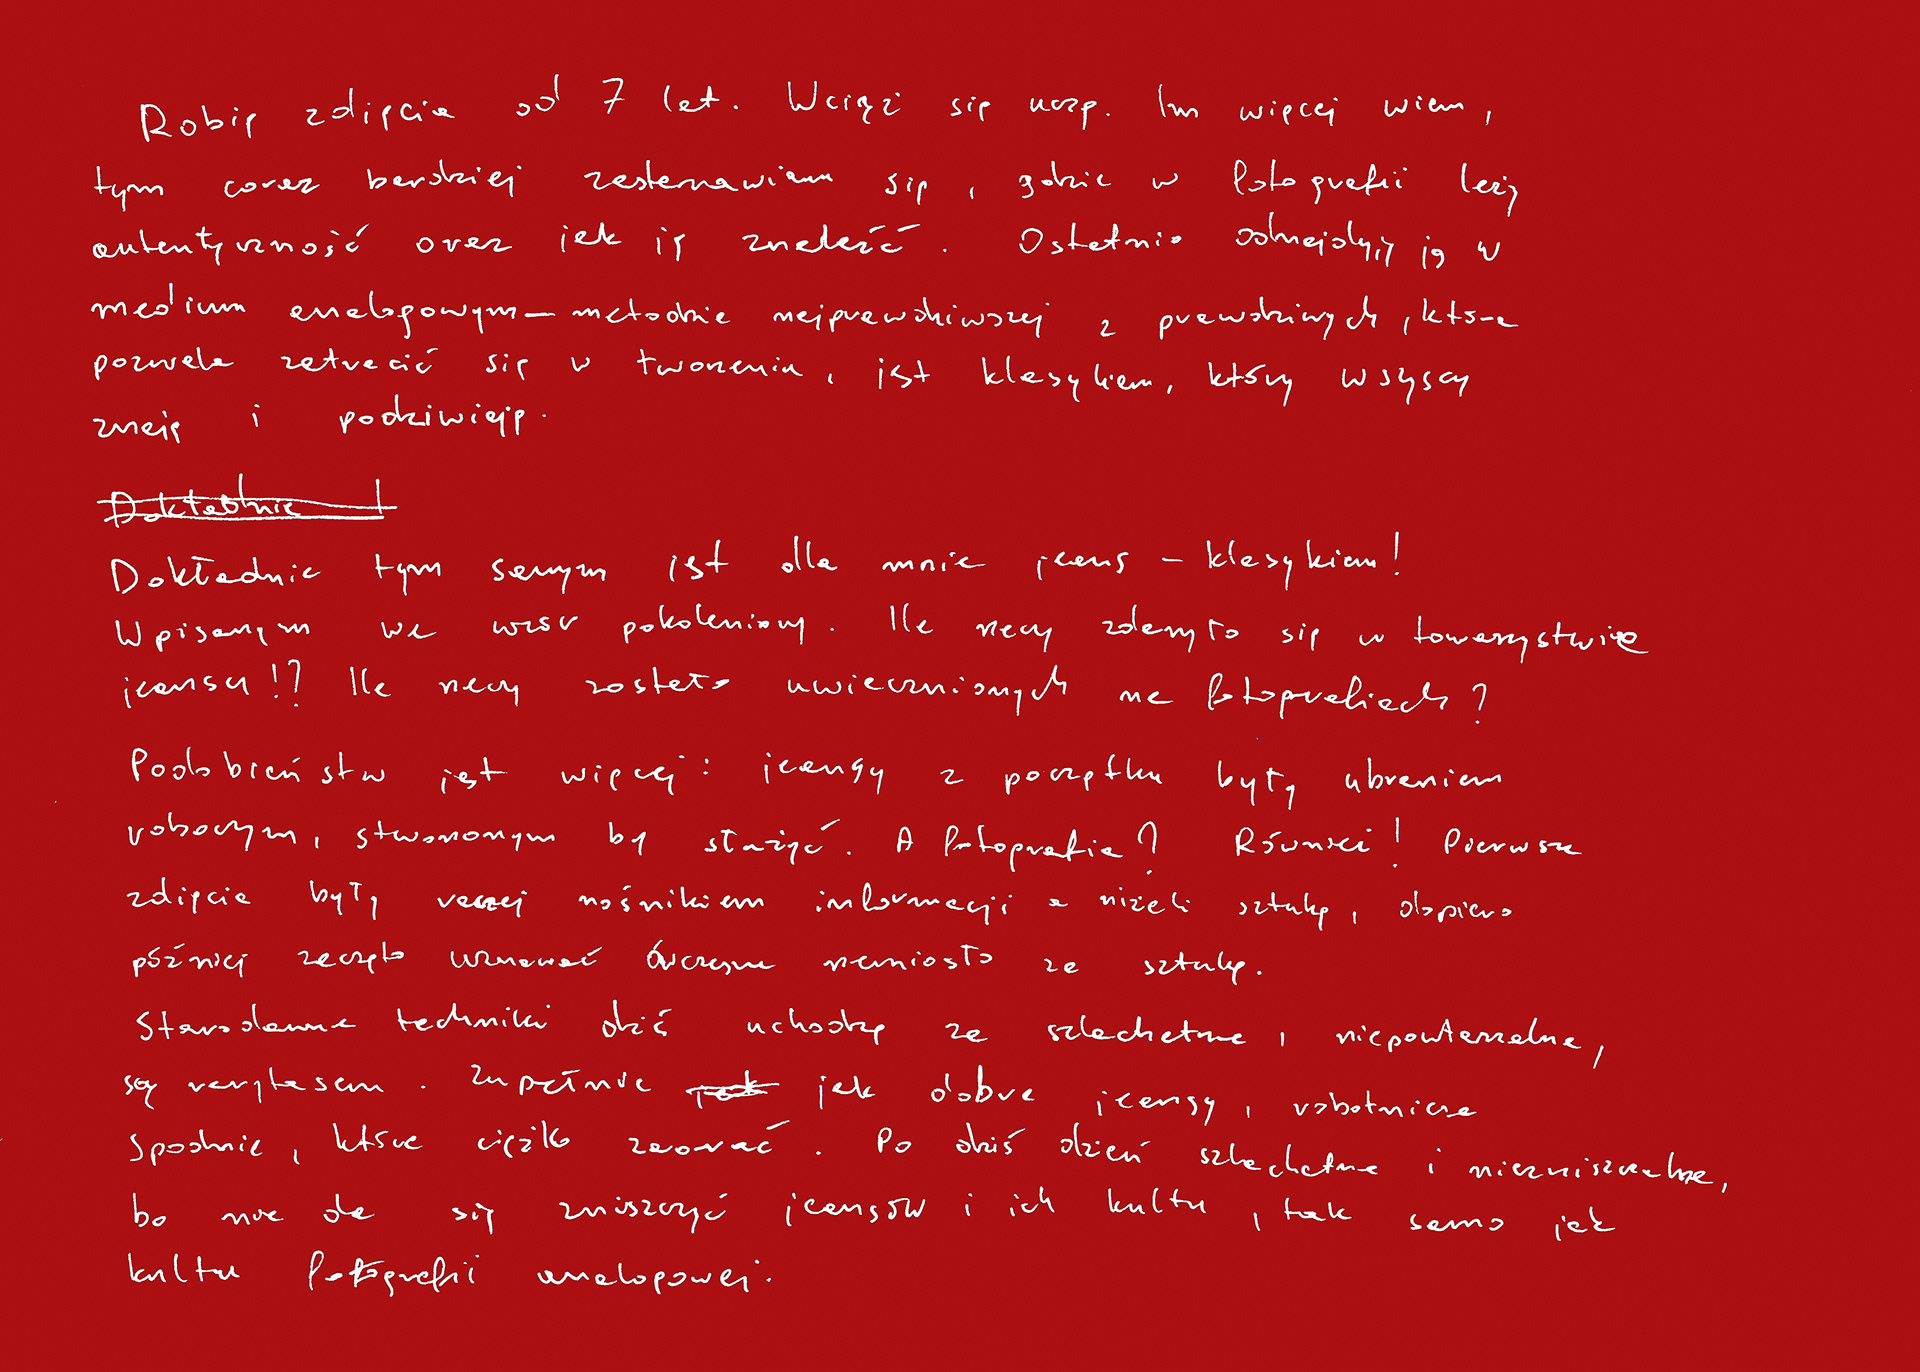 Robię zdjęcia od 7 lat. Wciąż się uczę. Im więcej wiem,
tym coraz bardziej zastanawiam się, gdzie w fotografii leży
autentyczność oraz jak ją znaleźć. Ostatnio odnajduję ją w
medium analogowym – metodzie najprawdziwszej z prawdziwych, która
pozwala zatracić się w tworzeniu, jest klasykiem, który wszyscy
znają i podziwiają.
Dokładnie t
Dokładnie tym samym jest dla mnie jeans – klasykiem!
Wpisanym we wzór pokoleniowy. Ile rzeczy zdarzyło się w towarzystwie
jeansu!? Ile rzeczy zostało uwiecznionych na fotografiach?
Podobieństw jest więcej: jeansy z początku były ubraniem
roboczym, stworzonym by służyć. A fotografia? Również! Pierwsze
zdjęcia były raczej nośnikiem informacji aniżeli sztuką, dopiero
później zaczęto uznawać ówczesne rzemiosło za sztukę.
Starodawne techniki dziś uchodzą za szlachetne, niepowtarzalne,
są rarytasem. Zupełnie jak dobre jeansy, robotnicze
spodnie, które ciężko zaorać. Po dziś dzień szlachetne i niezniszczalne,
bo nie da się zniszczyć jeansów i ich kultu, tak samo jak
kultu fotografii analogowej.